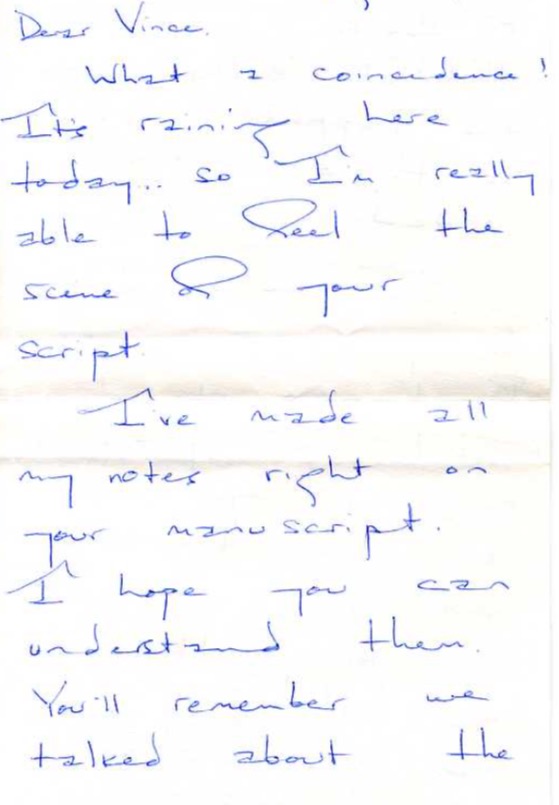 Dear Vince.
What a coincedence!
It's raining here
today... so I'm really
able to feel the
scene of your
script.
I've made all
my notes right on
your manuscript.
I hope you can
understand them.
You'll remember we
talked about the